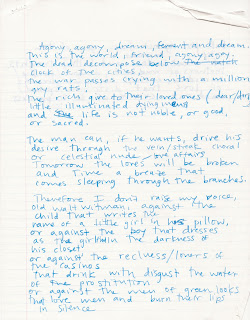 Agony, agony, dream, ferment and dream.
This is the world, friend, agony, agony.
The dead decompose below the
clock of the cities,
The war passes crying with a million
gray rats.
The rich give to their loved ones (
little illuminated dying
and life is not noble, or good,
or sacred.
The man can, if he wants, drive his
desire through the vein/streak choral
or celestial nude, but affairs
Tomorrow the loves will be broken
and Time a breeze that
comes sleeping through the branches.
Therefore I don't raise my voice,
old walt whitman, against the
child that writes the
name of a little girl in his pillow,
or against the boy that dresses
as the girl in the darkness of
his closet
or against the recluses/loners of
the casinos
that drink with disgust the water
of the prostitution
or against the men of green looks
that love men and burn their lips
in silence